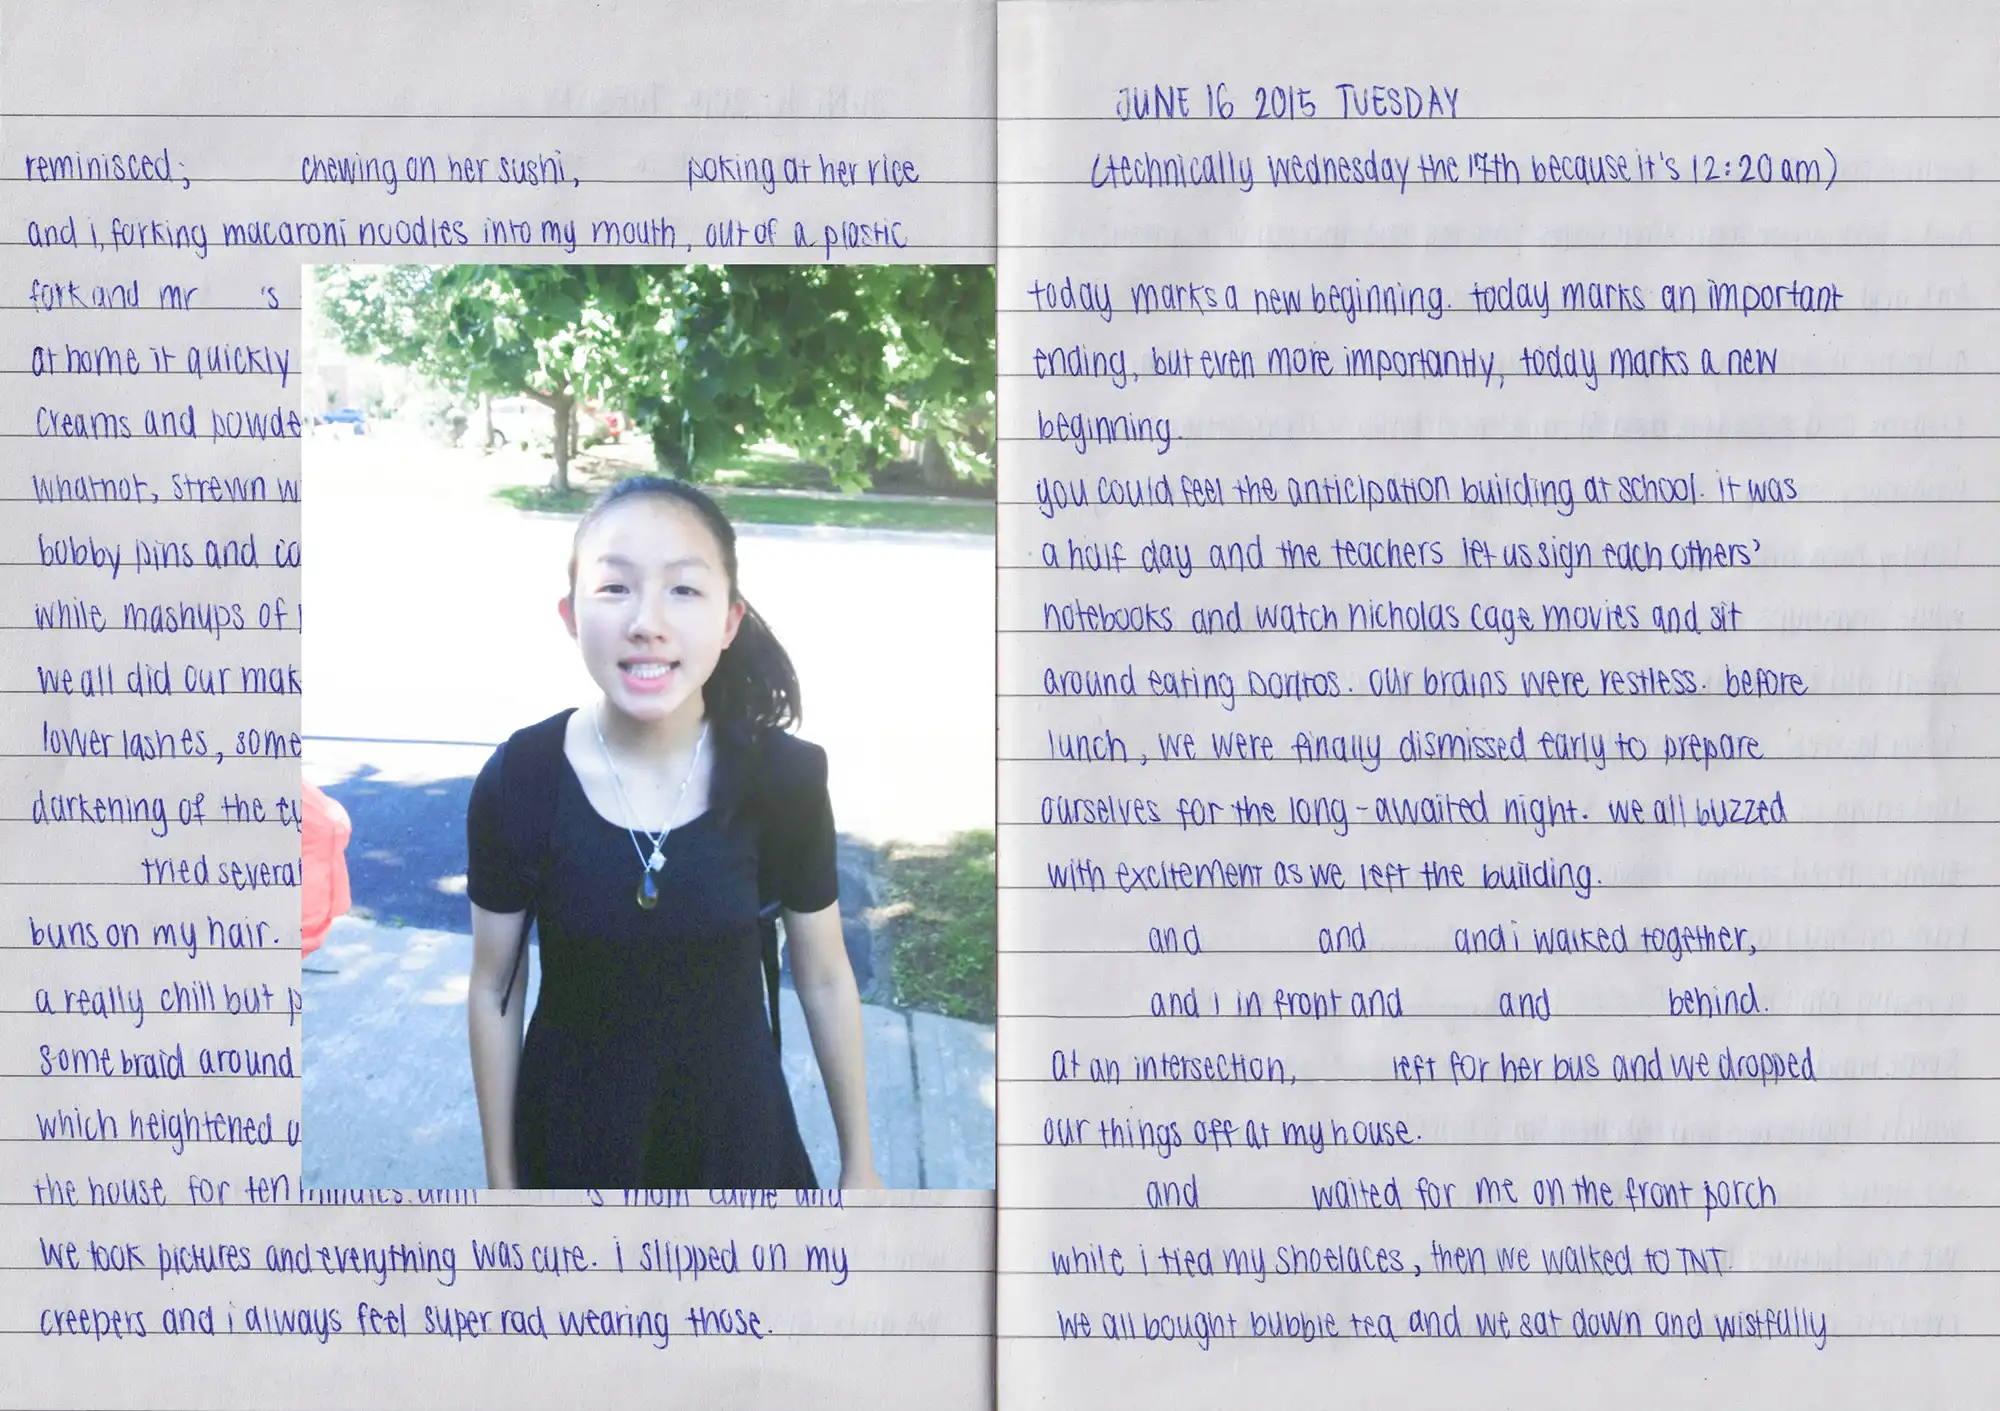 reminisced; chewing on her sushi, poking at her rice
and i, forking macaroni noodles into my mouth, out of a plastic
fork and mr 's
at home it quickly
creams and powde
whatnot, strewn w
bobby pins and co
while mashups of
we all did our mak
lower lashes, some
darkening of the ey
tried several
buns on my hair.
a really chill but p
some braid around
which heightened
the house for ten minutes until 's mom came and
we took pictures and everything was cute. i slipped on my
creepers and i always feel super rad wearing those.
JUNE 16 2015 TUESDAY
(technically wednesday the 17th because it's 12:20 am)
today marks a new beginning. today marks an important
ending, but even more importantly, today marks a new
beginning.
you could feel the anticipation building at school. it was
a half day and the teachers let us sign each others'
notebooks and watch nicholas cage movies and sit
around eating Doritos. our brains were restless. before
lunch, we were finally dismissed early to prepare
ourselves for the long-awaited night. we all buzzed
with excitement as we left the building.
and and and i walked together,
and i in front and and behind.
at an intersection, left for her bus and we dropped
our things off at my house.
and waited for me on the front porch
while i tied my shoelaces, then we walked to TNT.
we all bought bubble tea and we sat down and wistfully